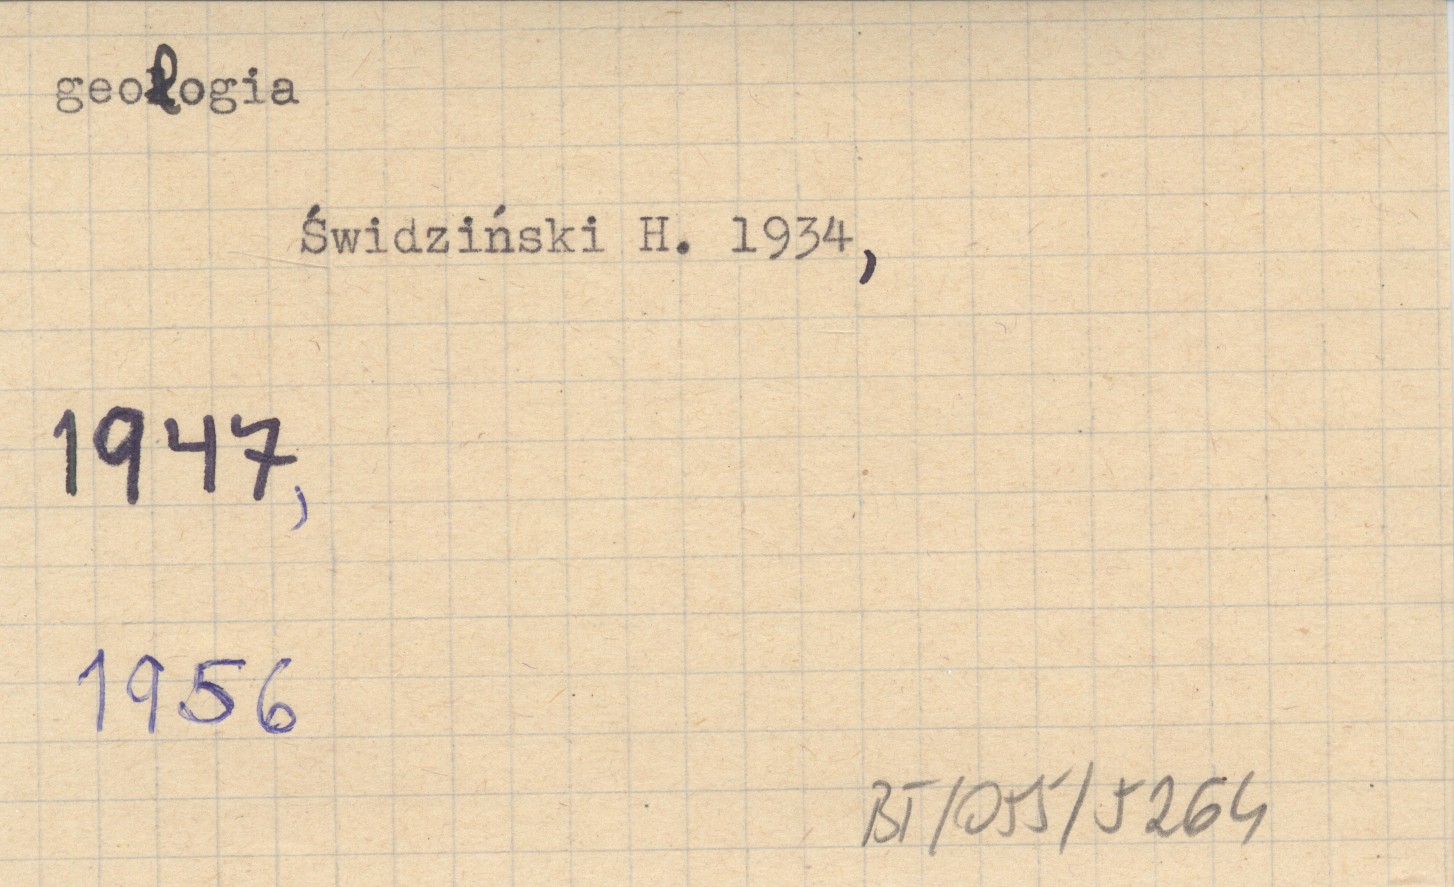 geologia
Świdziński H. 1934,
1947,
1956
BT/055/5264